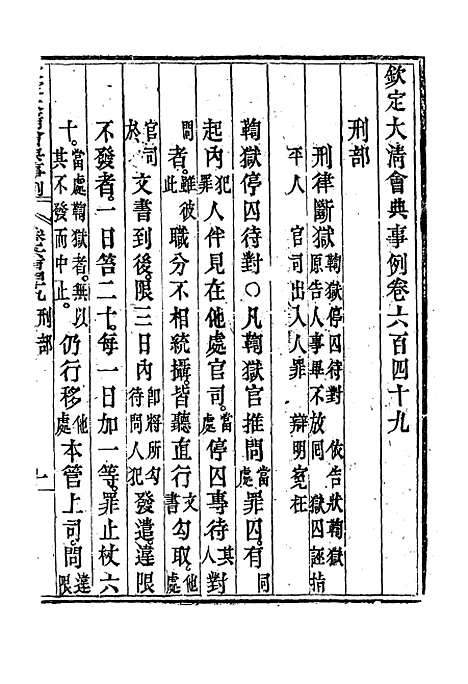 欽定大清會典事例卷六百四十九
刑部
刑律斷獄 鞫獄停囚待對 依告狀鞫獄
原告人事畢不放回 獄囚誣指
平人 官司出入人罪 辯明冤枉
鞫獄停囚待對○凡鞫獄官推問當處罪囚有同
起內犯罪人伴見在他處官司當處停囚專待其人對
問者雖彼此職分不相統攝皆聽直行文書勾取他處
官司於文書到後限三日內即將所勾待問人犯發遣違限
不發者一日笞二十每一日加一等罪止杖六
十當處鞫獄者無以其不發而中止仍行移他處本管上司問違限
卷六百四十九 刑部 一